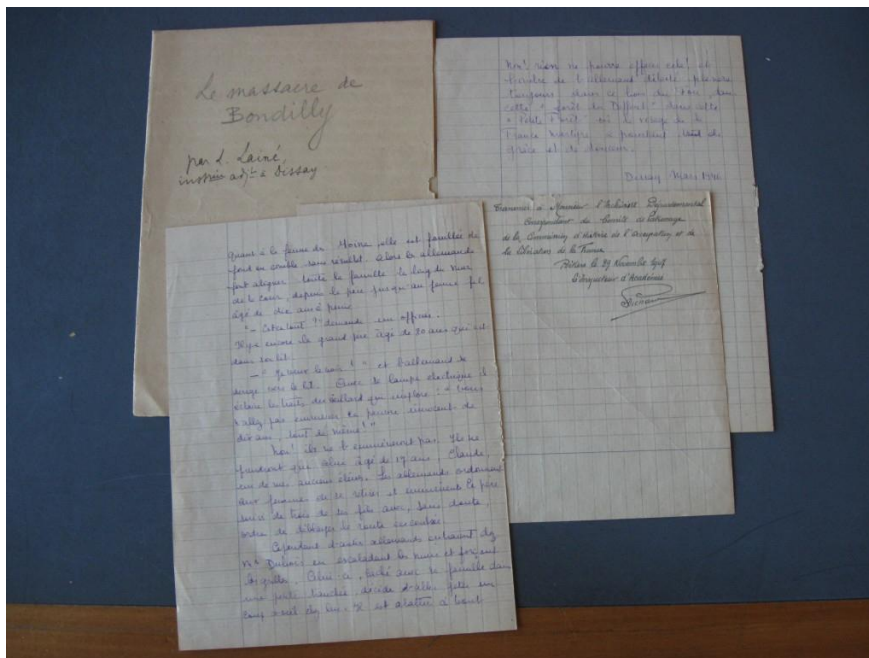 Le massacre de
Bondilly
par L. Lainé,
inst adjt à Dissay
Non! rien ne pourra effacer cela! et
l'ombre de l'allemand détesté planera
toujours dans ce bois du Parc, dans
cette "forêt du Deffant" dans cette
"Petite Forêt" où le visage de la
France Martyre, a pourtant tant de
grâce et de douceur.
Dissay Mars 194
Transmis à Monsieur l'Archiviste Départemental
Correspondant du Comité de
de la Commission d'Histoire de l'Occupation et de
la Libération de la France
Poitiers le 29 Novembre 1947
L'Inspecteur d'Académie
Quant à la ferme du Moine, elle est fouillée de
fond en comble sans résultat. Alors les allemands
font aligner toute la famille le long du mur
de la cour, depuis le père jusqu'au jeune fils
âgé de dix ans à peine.
"- C'est tout?" demande un officier.
Il y a encore le grand père âgé de 80 ans qui est
dans son lit.
- "Je veux le voir!" et l'allemand se
dirige vers le lit. Avec sa lampe électrique il
éclaire les traits du vieillard qui implore: "Vous
n'allez pas emmener ce pauvre innocent de
dix ans, tout de même!"
Non! ils ne l'emmèneront pas. Ils ne
prendront que âgé de 17 ans, Claude,
un de mes anciens élèves. Les allemands ordonnent
aux femmes de se retirer et emmènent le père
suivi de trois de ses fils avec, sans doute,
ordre de déblayer la route encombrée.
Cependant d'autres allemands entraient chez
Mr en escaladant les murs et forçant
les grilles. Celui-ci, caché avec sa famille dans
une petite tranchée, décide d'aller jeter un
coup d'œil chez lui. Il est abattu à bout